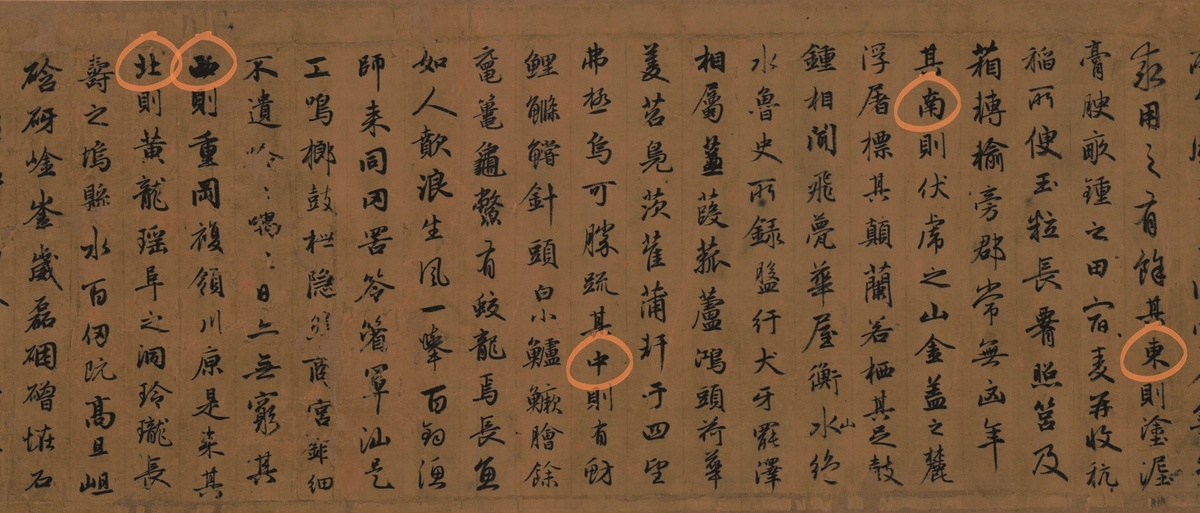 求用之有餘其東則塗泥
膏腴畝鍾之田宿麥再收秔
稻所便玉粒長照筥及
箱轉輸旁郡常無凶年
其南則伏虎之山金蓋之麓
浮屠標其顛蘭若栖其足鼓
鍾相聞飛甍華屋衡水山絕
水魯史所錄盤紆犬牙罷澤
相屬葭菰蘆鴻頭荷華
菱苕鳧茨萑蒲軒于四望
弗極烏可勝疏其中則有魴
鯉鰷鱨針頭白小鱸鱖膾餘
黿鼉龜鼈有蛟龍焉長魚
如人歕浪生風一舉百鈞漁
師來同罔罟笭箵罩汕是
工鳴榔鼓枻隱商宮鮮細
不遺噞:喁:日亡無窮其
西則重岡複嶺川原是來其
北則黃龍瑤阜之洞玲瓏長
壽之塢縣水百仞阬高且岨
硌砑崟磊磳石